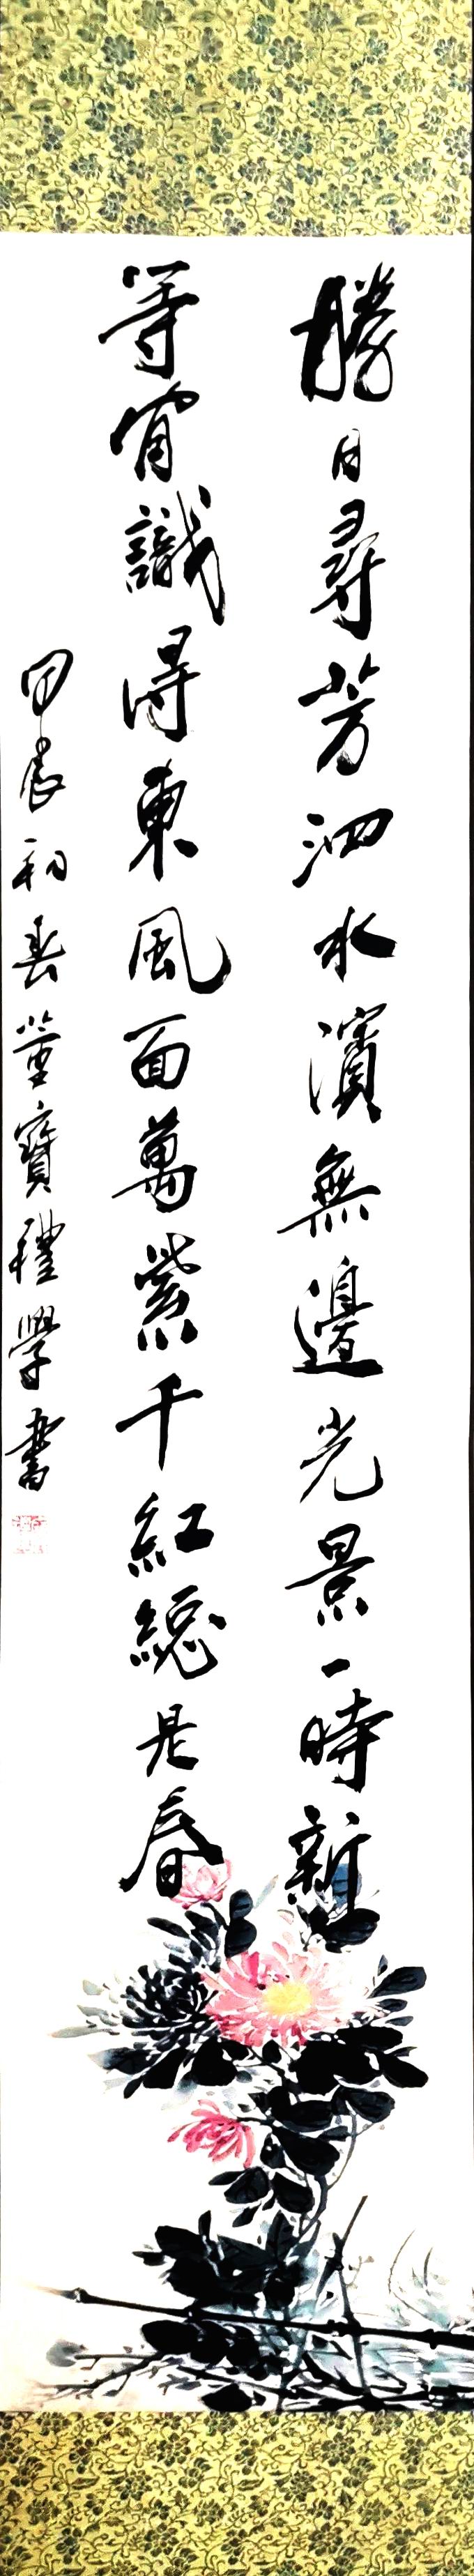 勝日尋芳泗水濱無邊光景一時新
等宵識得東風面萬紫千紅總是春
甲辰初春董寶禮學書